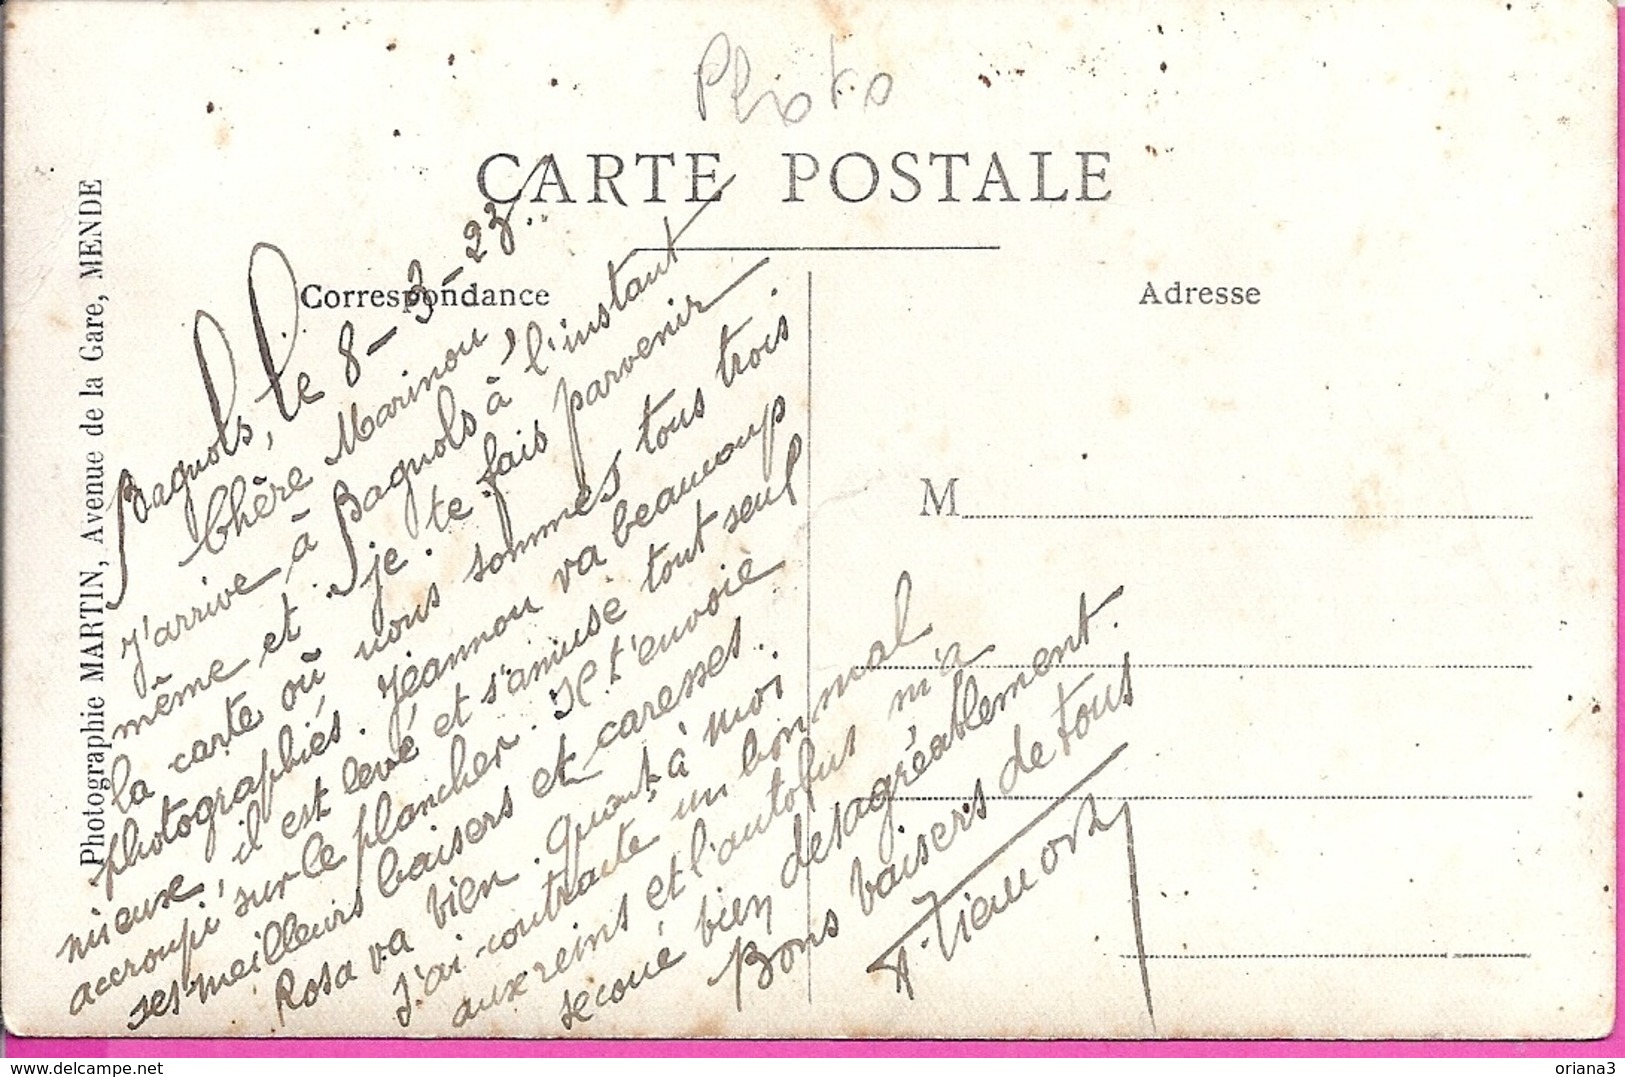 Photo
CARTE POSTALE
Correspondance
Adresse
M
Photographie MARTIN, Avenue de la Gare, MENDE
Bagnols, le 8-3-23.
Chère Marinou,
J'arrive à Bagnols à l'instant
même et je te fais parvenir
la carte où nous sommes tous trois
photographiés. Jeannou va beaucoup
mieux, il est levé et s'amuse tout seul
accroupi sur le plancher. Il t'envoie
ses meilleurs baisers et caresses.
Rosa va bien. Quant à moi
J'ai contracté un bon mal
aux reins et l'autobus m'a
secoué bien désagréablement.
Bons baisers de tous
delcampe.net
oriana3